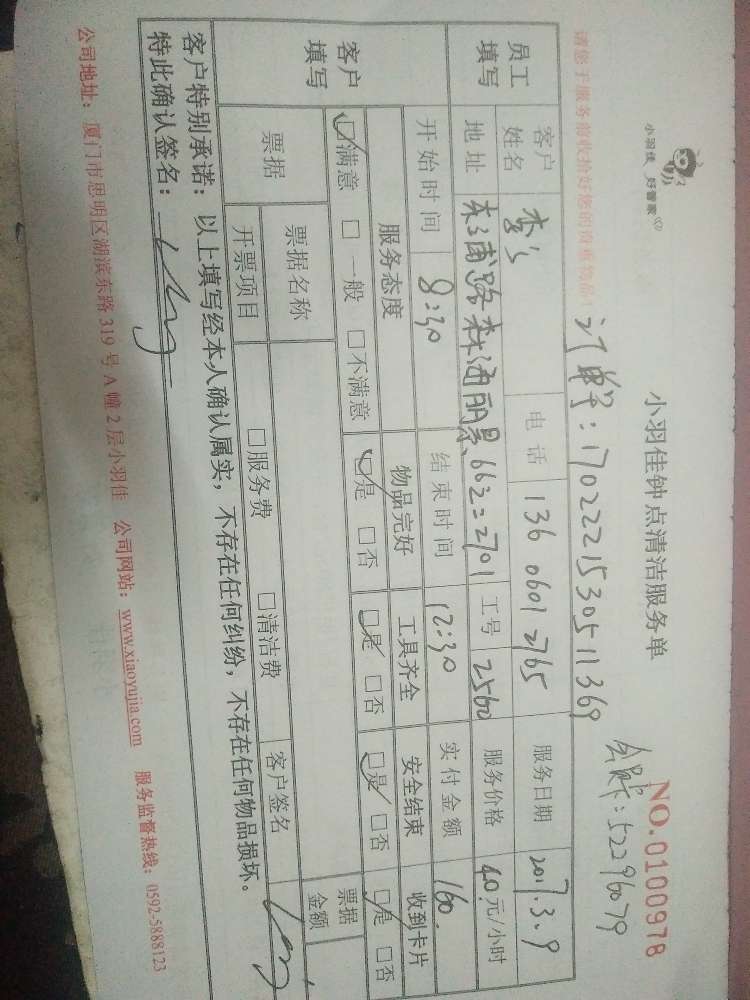 小羽佳 好管家
小羽佳钟点清洁服务单
NO.0100978
会员卡:52296079
订单号:1702221530511369
请您于服务前收拾好您的贵重物品!
员工填写
客户姓名 李's 电话 136 0601 2765 服务日期 2017.3.9
地址 路 森海丽景 662=2701 工号 2560 服务价格 40元/小时
开始时间 8:30 结束时间 12:30 实付金额 160.
客户填写
服务态度 物品完好 工具齐全 安全结束 收到卡片
☑满意 □一般 □不满意 ☑是 □否 ☑是 □否 ☑是 □否 ☑是 □否
票据 票据名称 票据金额
开票项目 □服务费 □清洁费 客户签名
客户特别承诺:以上填写经本人确认属实,不存在任何纠纷,不存在任何物品损坏。
特此确认签名:
公司地址:厦门市思明区湖滨东路319号A幢2层小羽佳 公司网站:www.xiaoyujia.com 服务监督热线:0592-5888123